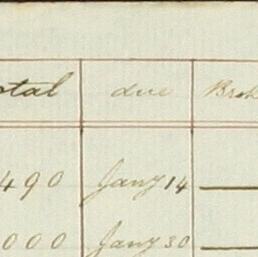 otal due Brok
490 Jany 14
000 Jany 30